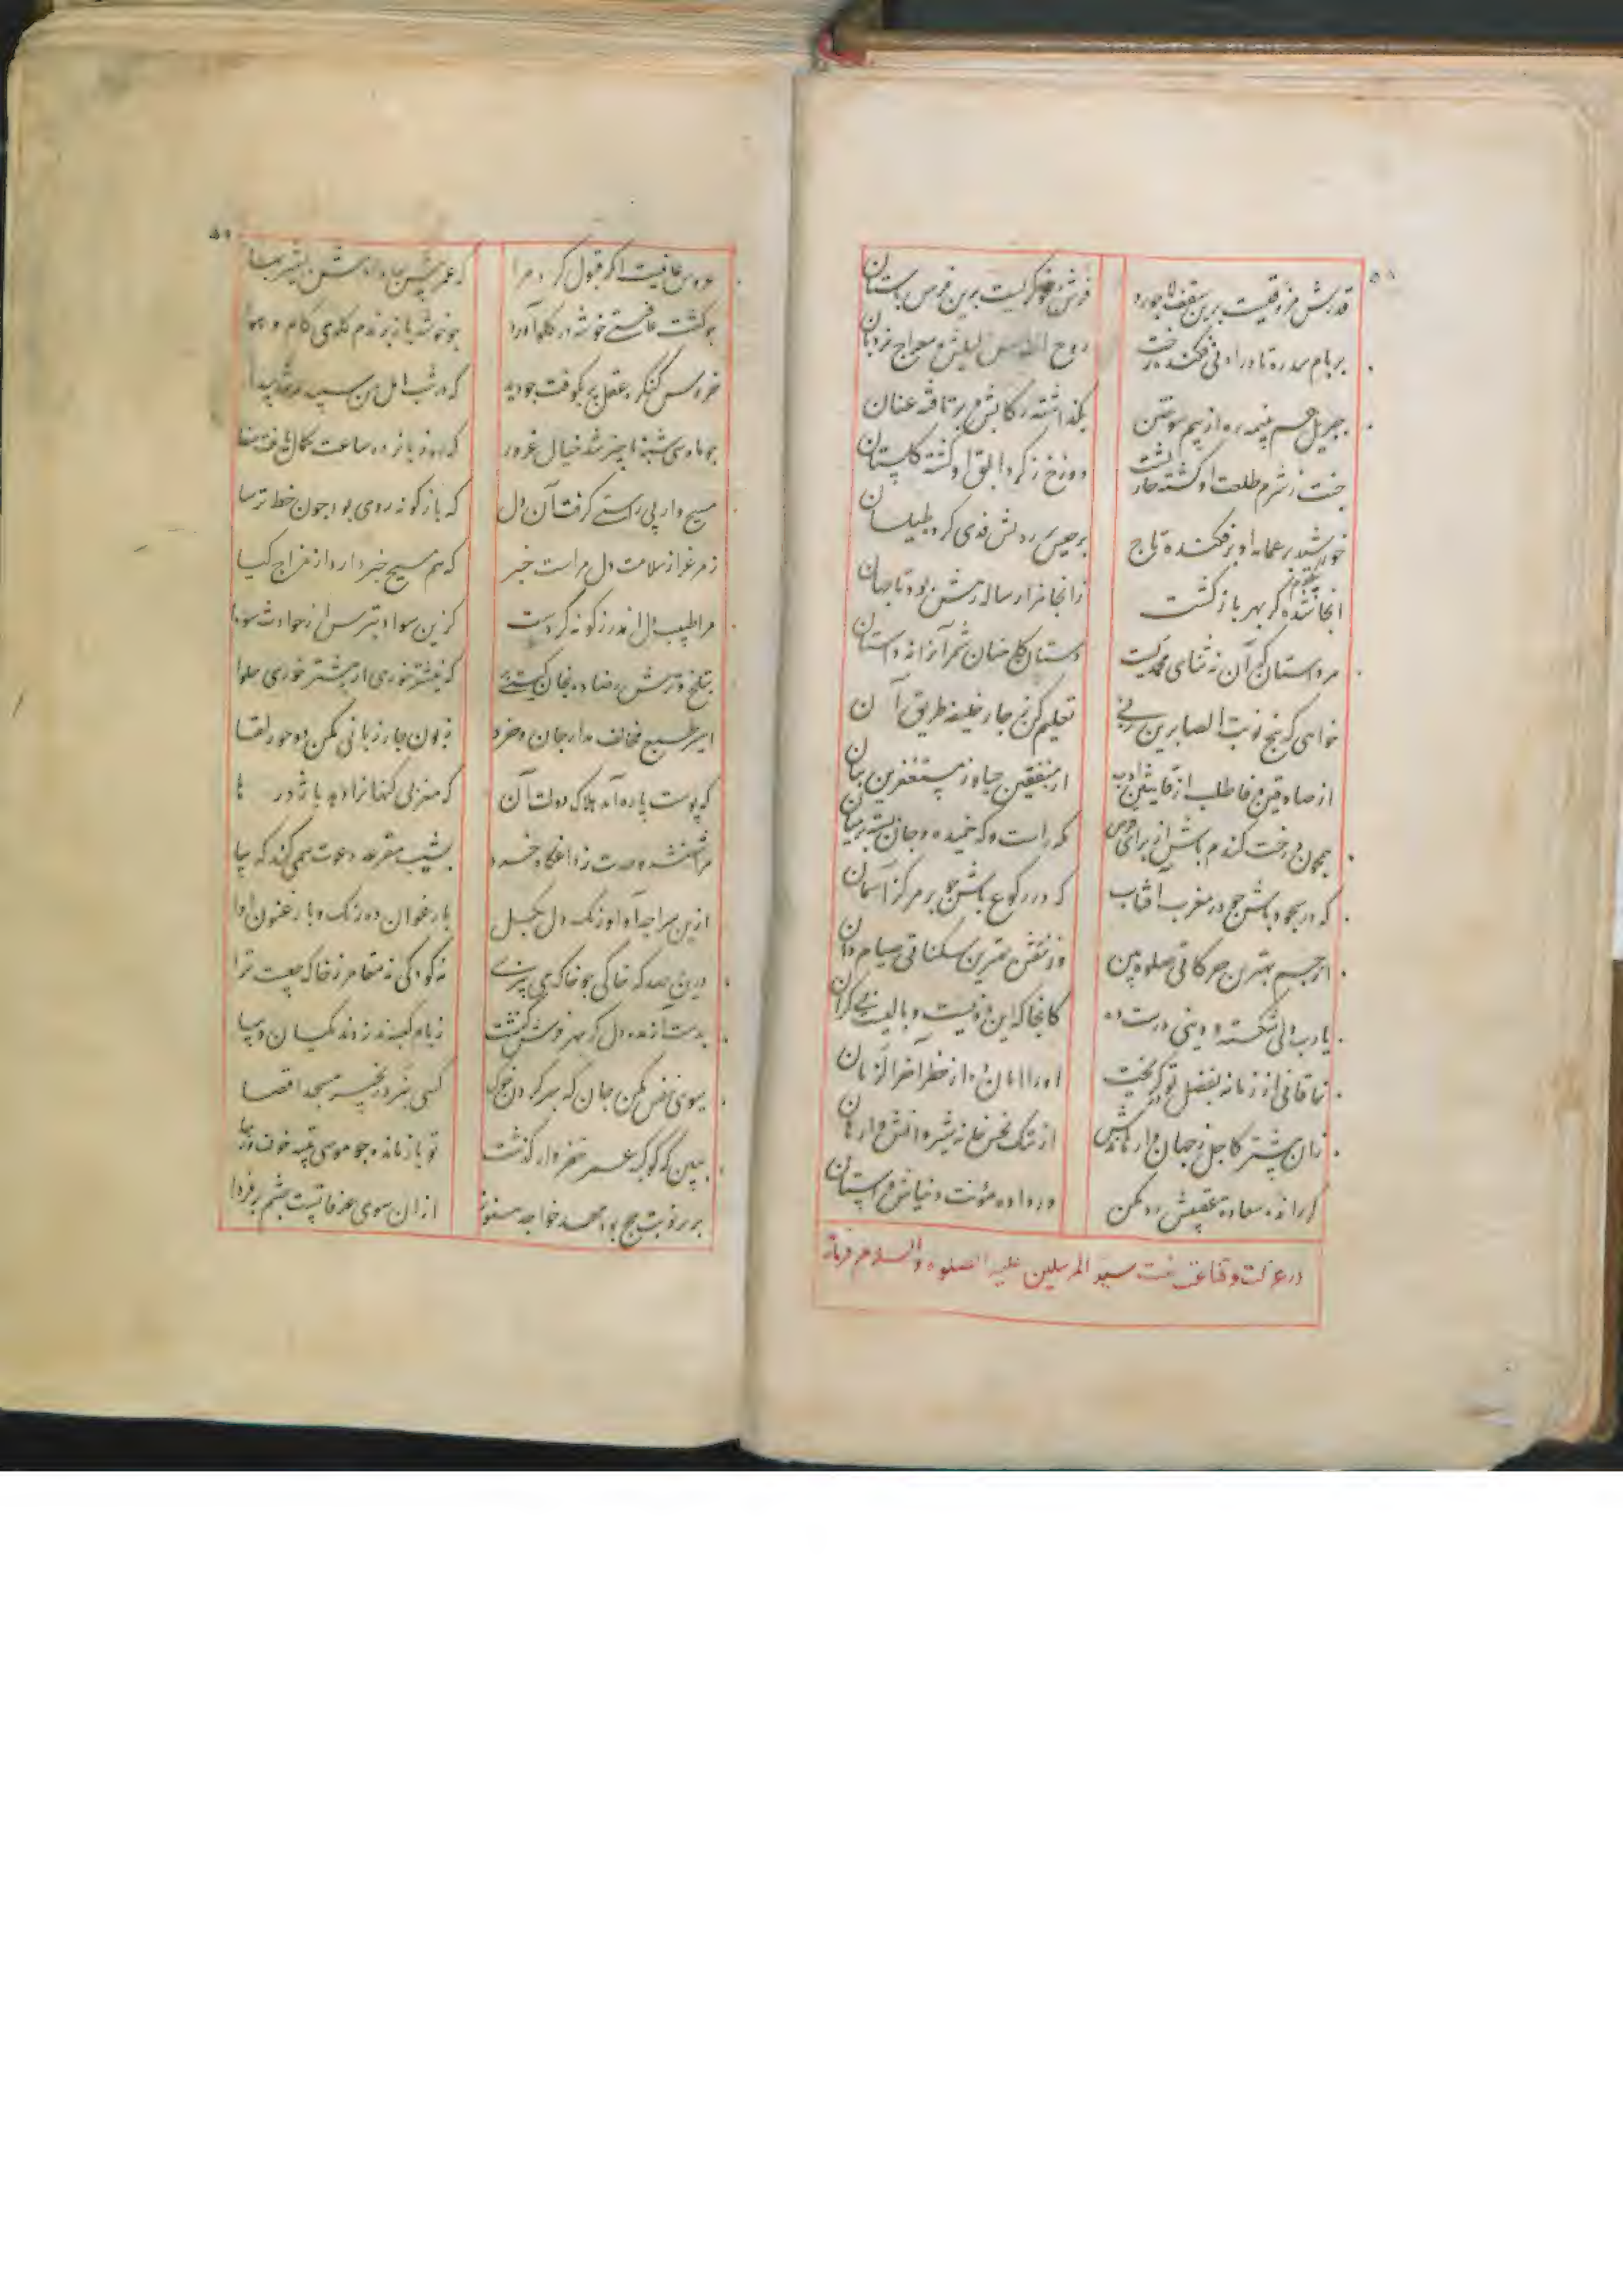 ۵۸
قدرش مروقیست برین سقف لاجورد فرش فرکیست برین فرش باستان
بر بام سدره تا در ادنی فکنده رخت روح القدس دلیلش و معراج نردبان
جبریل هم به نیمه ره از بیم سوختن بگذاشته رکابش و برتافته عنان
جنت ز شرم طلعت او گشته خار بست دوزخ ز گرد ابلق او گشته گلستان
خورشید بر عمامه او بر فکنده تاج برجیس بر ردش فدی کرده طیلسان
انجا شده گر بهر باز گشت زانجا هزار ساله رهش بوده تا جهان
مرد استان که آن نه ثنای محمدیست دستان کاهنان شمر آنرا نه داستان
خواهی که پنج نوبت الصابرین زنی تعلیم کن ز چار خلیفه طریق آن
از صادقین وفا طلب از قانتین ادب از منفقین حیا و ز مستغفرین بیان
همچون درخت گندم باش از برای فرض گه راست و گه خمیده و جان بسته بر میان
گه در سجود باش چو در مغرب آفتاب گه در رکوع باش چو بر مرکز آسمان
از جسم بهترین حرکاتی صلوة بین وز نفس بهترین سکناتی صیام دان
یا رب دل شکسته و دینی درست ده کانجا که این دو نیست وبالیست بی کران
خاقانی از زمانه بفضل تو در گریخت او را امان ده از خطر آخر الزمان
زان پیشتر کاجل ز جهان وارهاندش از ننگ نحس خانه شروانش وارهان
آراند سعادت عقبیش رد مکن ور داده مؤنت دنیاش واستان
در عزلت و قناعت نعت سید المرسلین علیه الصلوة والسلام فرماید
۵۹
عروس عافیت آنگه قبول کرد مرا که عمر پیش بها دادمش بشیر بها
چو کشت عافیتم خوشه در گلو آورد چو خوشه باز بریدم گلوی کام و هوا
خروس کنگره عقل پر بکوفت چو دید که در شب امل من سپیده شد پیدا
چو ماه سی شبه ناچیز شد خیال غرور که روز پانزده ساعت کمال یافت ضیا
مسیح وار پی راستی گرفت آن دل که باژگونه روی بود چون خط ترسا
ز مرغزار سلامت دل مراست خبر که هم مسیح خبر دارد از مزاج گیا
مرا طبیب دل اندرز گونه کردست کزین سواد بترس از حوادث سودا
بتلخ و ترش رضا ده بخوان گیتی که نیشتر خوری ار بیشتر خوری حلوا
اسیر طبع مخالف مدار جان و خرد زبون چار زبانی مکن دو حور لقا
که پوست پاره آمد هلاک دولت آن که مغز بی گنهان را دهد باژدرها
مرا شهنشه وحدت ز داغگاه خرد بشیب مقرعه دعوت همی کند که بیا
ازین سراچه آوا و رنگ دل بگسل بارغوان ده رنگ و بارغنون آوا
درین رصدگه خاکی چه خاک می بیزی نه کودکی نه مقامر ز خاک چیست ترا
بدست آز مده دل که بهر فرش کنشت ز بام کعبه ندزدند مکیان دیبا
بسوی نفس مکن جان که بهر گردن خوک کسی نبرد زنجیر مسجد اقصا
ببین که کوکبه عمر خضروار گذشت تو باز مانده چو موسی بتیه خوف و رجا
برید نوبت حج بود مهد خواجه هنوز از آن سوی عرفاتست چشم بر فردا